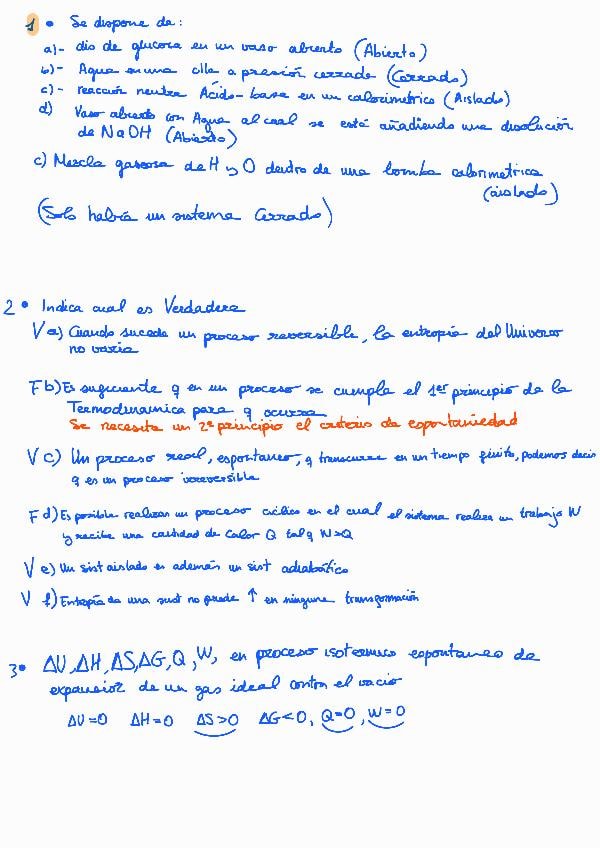 1 • Se dispone de:
a)- dis de glucosa en un vaso abierto (Abierto)
b)- Agua en una olla a presión cerrada (Cerrado)
c)- reacción neutra Ácido-base en un calorimétrico (Aislado)
d) Vaso abierto con Agua al cual se está añadiendo una disolución
de NaOH (Abierto)
c) Mezcla gaseosa de H y O dentro de una bomba calorimetrica
(aislado)
(Solo habría un sistema Cerrado)
2 • Indica cual es Verdadera
V a) Cuando sucede un proceso reversible, la entropía del Universo
no varia
F b) Es suficiente q en un proceso se cumpla el 1er principio de la
Termodinamica para q ocurra
Se necesita un 2º principio el criterio de espontaniedad
V c) Un proceso real, espontaneo, q transcurre en un tiempo finito, podemos decir
q es un proceso irreversible
F d) Es posible realizar un proceso cíclico en el cual el sistema realiza un trabajo W
y recibe una cantidad de calor Q tal q W>Q
V e) Un sist aislado es además un sist adiabático
V f) Entropía de una sust no puede ↑ en ninguna transformación
3 • ΔU, ΔH, ΔS, ΔG, Q, W, en proceso isotermico espontaneo de
expansion de un gas ideal contra el vacio
ΔU=0 ΔH=0 ΔS>0 ΔG<0, Q=0, W=0